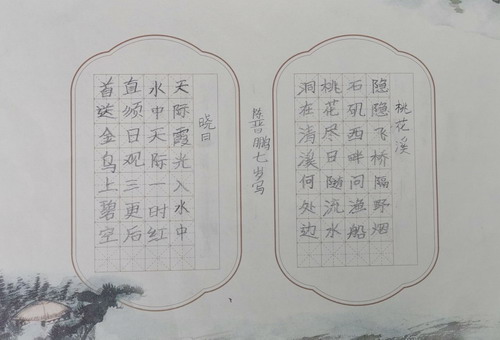 桃花溪
隐隐飞桥隔野烟
石矶西畔问渔船
桃花尽日随流水
洞在清溪何处边
陈晋鹏七岁写
晓日
天际霞光入水中
水中天际一时红
直须日观三更后
首送金乌上碧空